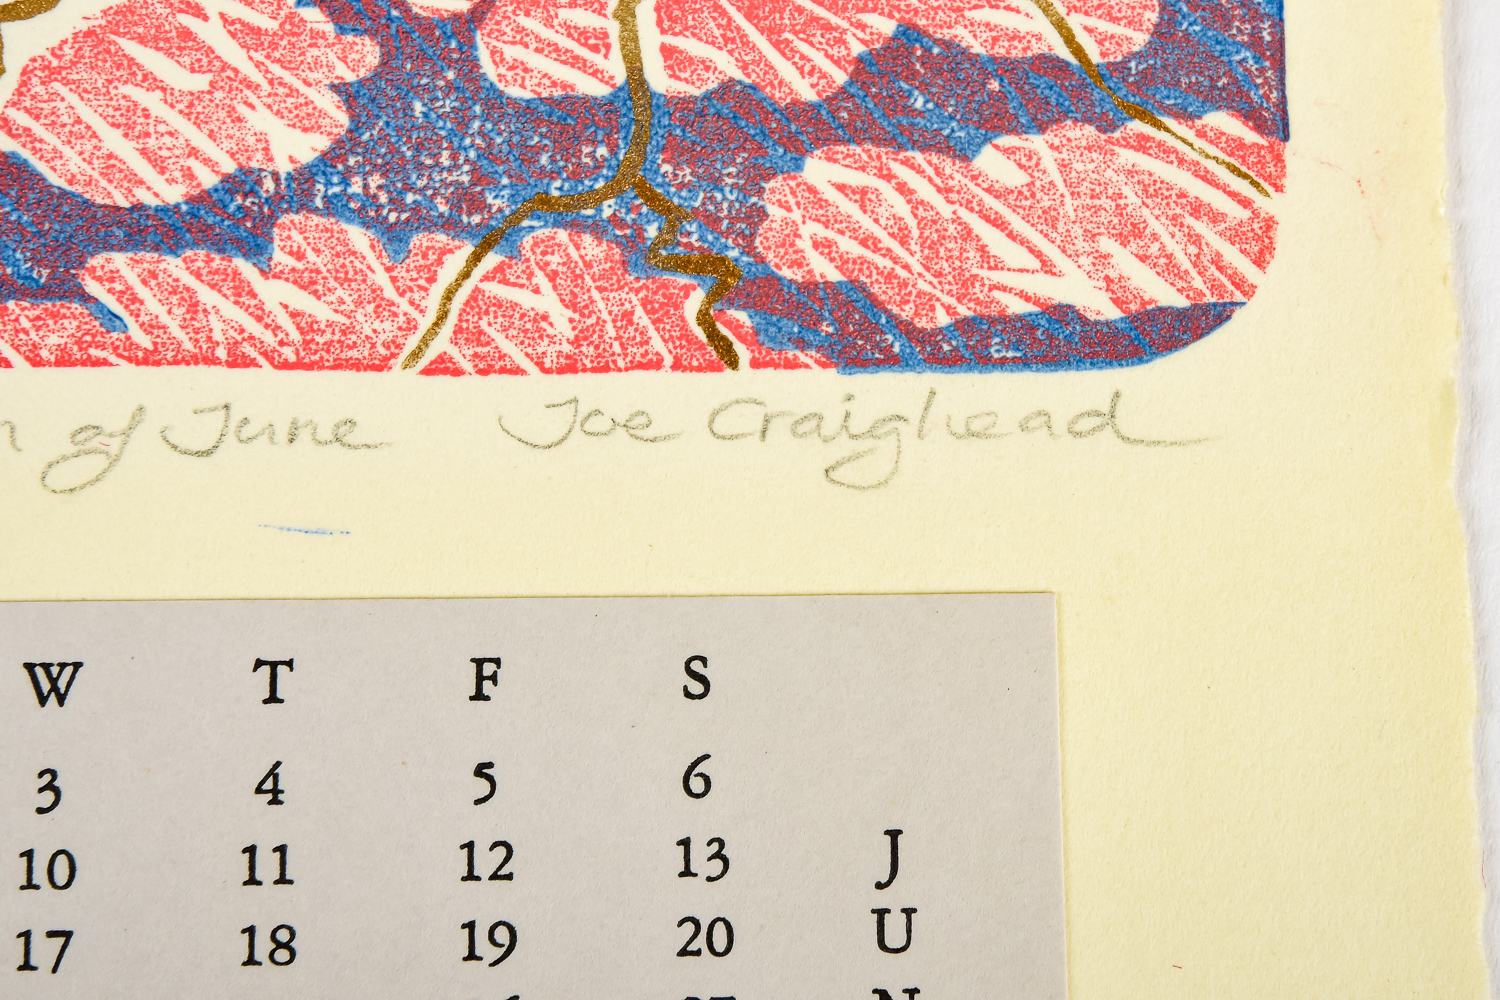 of June Joe Craighead
W T F S
3 4 5 6
10 11 12 13 J
17 18 19 20 U
N